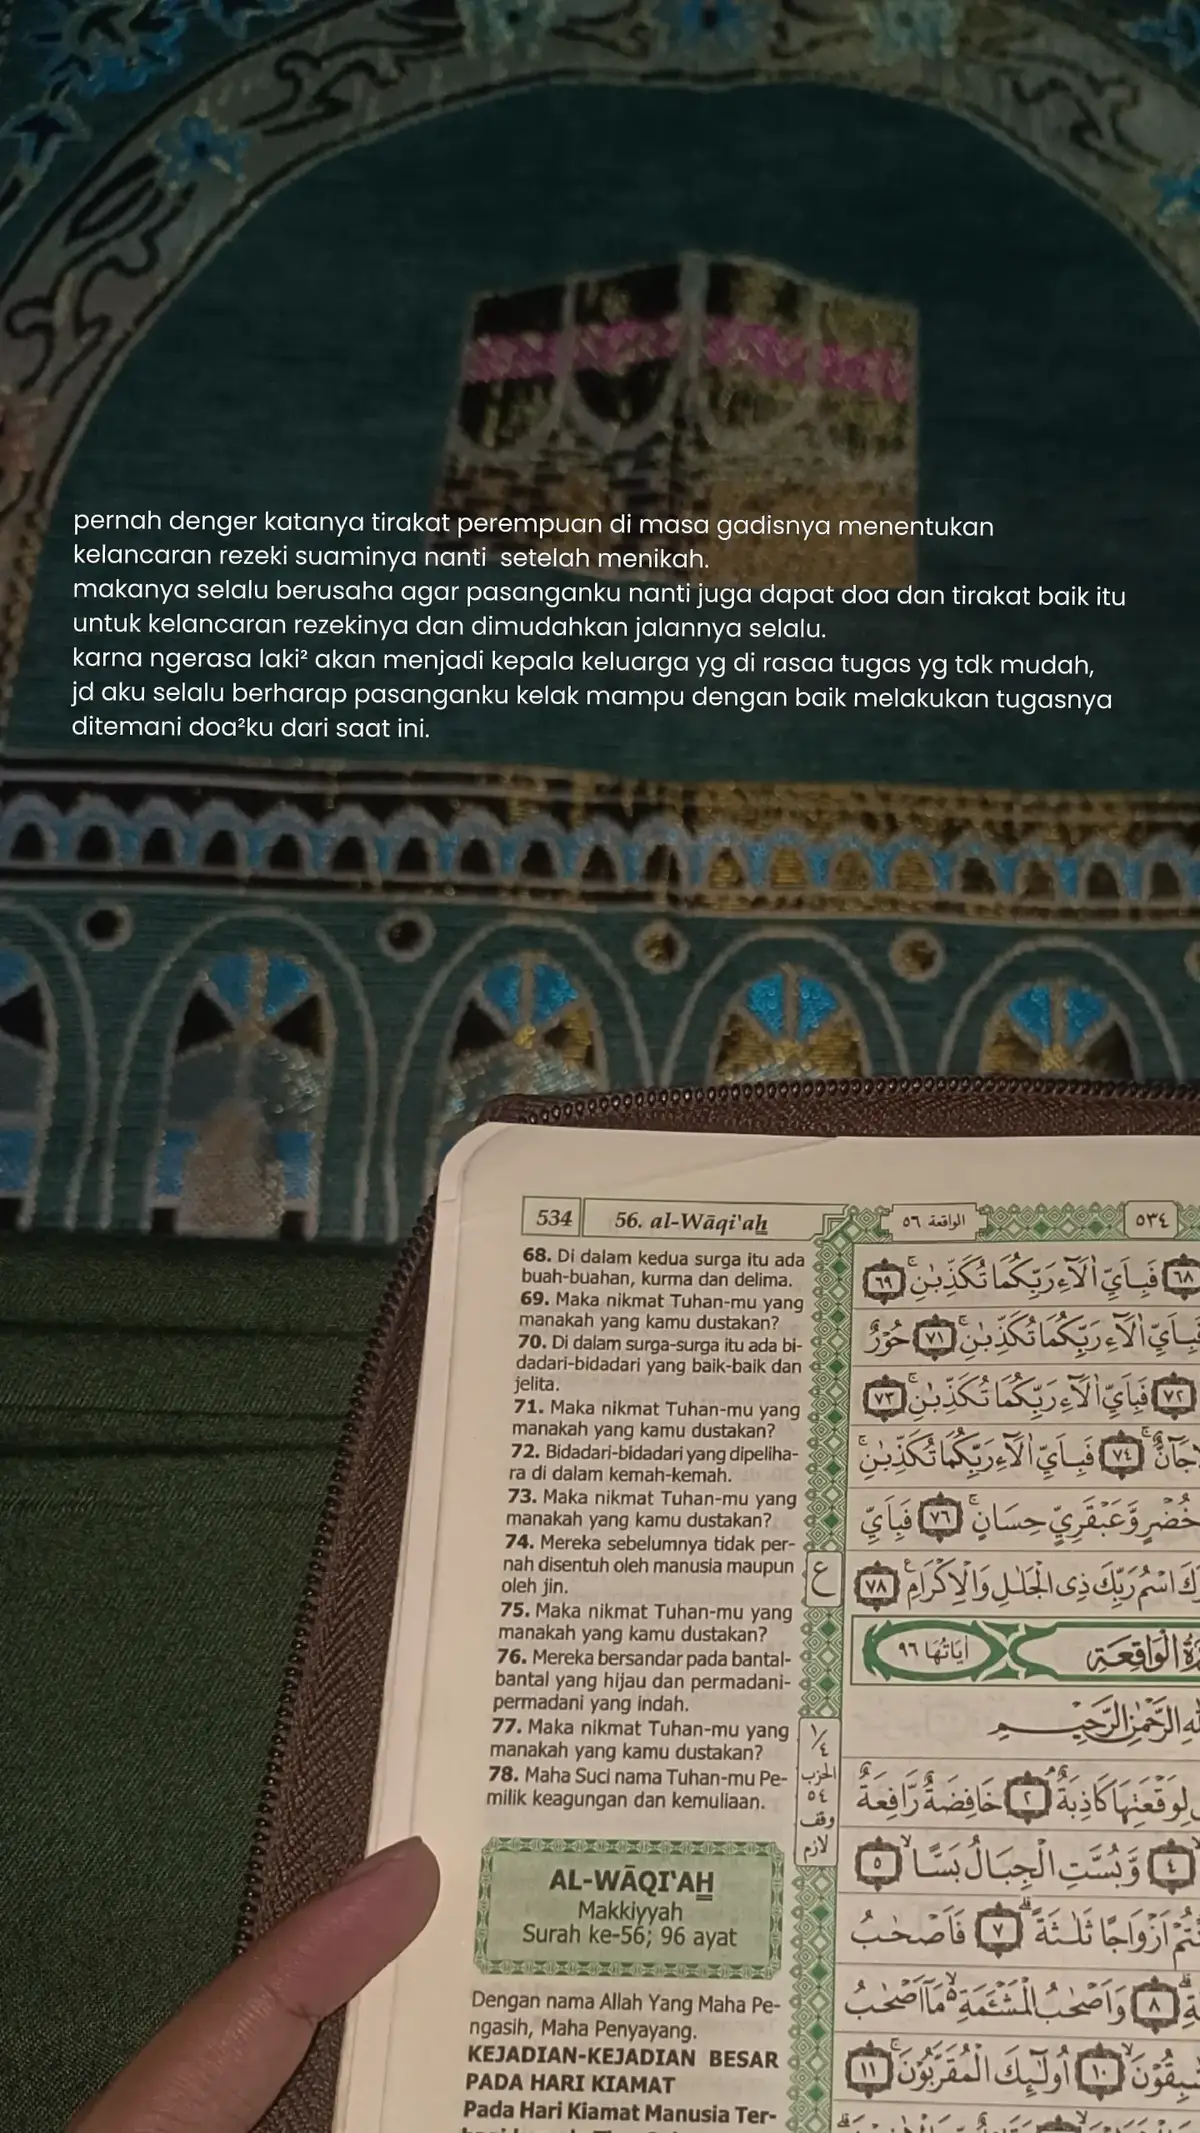 pernah denger katanya tirakat perempuan di masa gadisnya menentukan
kelancaran rezeki suaminya nanti setelah menikah.
makanya selalu berusaha agar pasanganku nanti juga dapat doa dan tirakat baik itu
untuk kelancaran rezekinya dan dimudahkan jalannya selalu.
karna ngerasa laki² akan menjadi kepala keluarga yg di rasaa tugas yg tdk mudah,
jd aku selalu berharap pasanganku kelak mampu dengan baik melakukan tugasnya
ditemani doa²ku dari saat ini.
534 56. al-Wāqi'ah الواقعة ٥٦ ٥٣٤
68. Di dalam kedua surga itu ada
buah-buahan, kurma dan delima.
69. Maka nikmat Tuhan-mu yang
manakah yang kamu dustakan?
70. Di dalam surga-surga itu ada bi-
dadari-bidadari yang baik-baik dan
jelita.
71. Maka nikmat Tuhan-mu yang
manakah yang kamu dustakan?
72. Bidadari-bidadari yang dipeliha-
ra di dalam kemah-kemah.
73. Maka nikmat Tuhan-mu yang
manakah yang kamu dustakan?
74. Mereka sebelumnya tidak per-
nah disentuh oleh manusia maupun
oleh jin.
75. Maka nikmat Tuhan-mu yang
manakah yang kamu dustakan?
76. Mereka bersandar pada bantal-
bantal yang hijau dan permadani-
permadani yang indah.
77. Maka nikmat Tuhan-mu yang
manakah yang kamu dustakan?
78. Maha Suci nama Tuhan-mu Pe-
milik keagungan dan kemuliaan.
AL-WĀQI'AH
Makkiyyah
Surah ke-56; 96 ayat
Dengan nama Allah Yang Maha Pe-
ngasih, Maha Penyayang.
KEJADIAN-KEJADIAN BESAR
PADA HARI KIAMAT
Pada Hari Kiamat Manusia Ter-
ع
١/٤
الحزب
٥٤
وقف
لازم
٦٨ فَبِاَيِّ اٰلَاۤءِ رَبِّكُمَا تُكَذِّبٰنِۚ ٦٩
فَبِاَيِّ اٰلَاۤءِ رَبِّكُمَا تُكَذِّبٰنِۚ ٧١ حُوْرٌ
٧٢ فَبِاَيِّ اٰلَاۤءِ رَبِّكُمَا تُكَذِّبٰنِۚ ٧٣
جَاۤنٌّۚ ٧٤ فَبِاَيِّ اٰلَاۤءِ رَبِّكُمَا تُكَذِّبٰنِۚ
خُضْرٍ وَّعَبْقَرِيٍّ حِسَانٍۚ ٧٦ فَبِاَيِّ
اسْمُ رَبِّكَ ذِى الْجَلٰلِ وَالْاِكْرَامِ ٧٨
الْوَاقِعَةِ اٰيَاتُهَا ٩٦
الرَّحْمٰنِ الرَّحِيْمِ
لِوَقْعَتِهَا كَاذِبَةٌۘ ٢ خَافِضَةٌ رَّافِعَةٌ
٤ وَّبُسَّتِ الْجِبَالُ بَسًّاۙ ٥
اَزْوَاجًا ثَلٰثَةًۗ ٧ فَاَصْحٰبُ
٨ وَاَصْحٰبُ الْمَشْـَٔمَةِ ەۙ مَآ اَصْحٰبُ
١٠ اُولٰۤىِٕكَ الْمُقَرَّبُوْنَۚ ١١